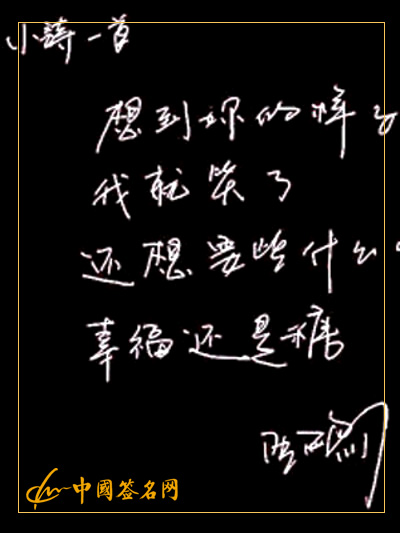 小詩一首
想到你的样子
我就笑了
还想要些什么
幸福还是糖
中國签名网